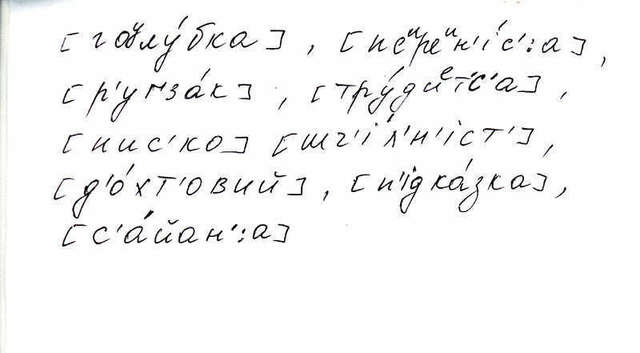 [гоᵘлу́бка], [пеᵘреᵘн'і́с':а],
[р'угза́к], [тру́диᵉт'с'а],
[нис'ко] [шч'і́л'н'іст'],
[д'о́хт'овий], [п'ідка́зка],
[с'а́йан':а]